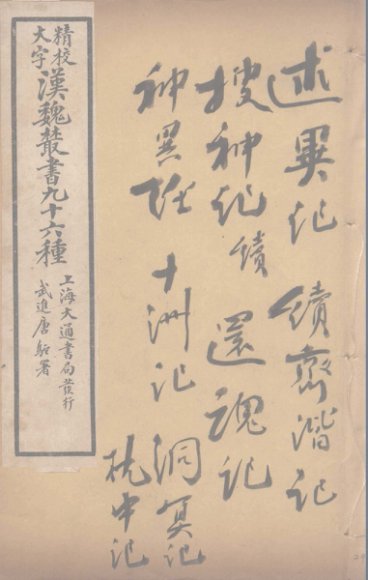 述異記 續齊諧記
搜神記 續 還魂記
神異經 十洲記 洞冥記
枕中記
精校大字漢魏叢書九十六種
上海大通書局發行
武進唐駝署